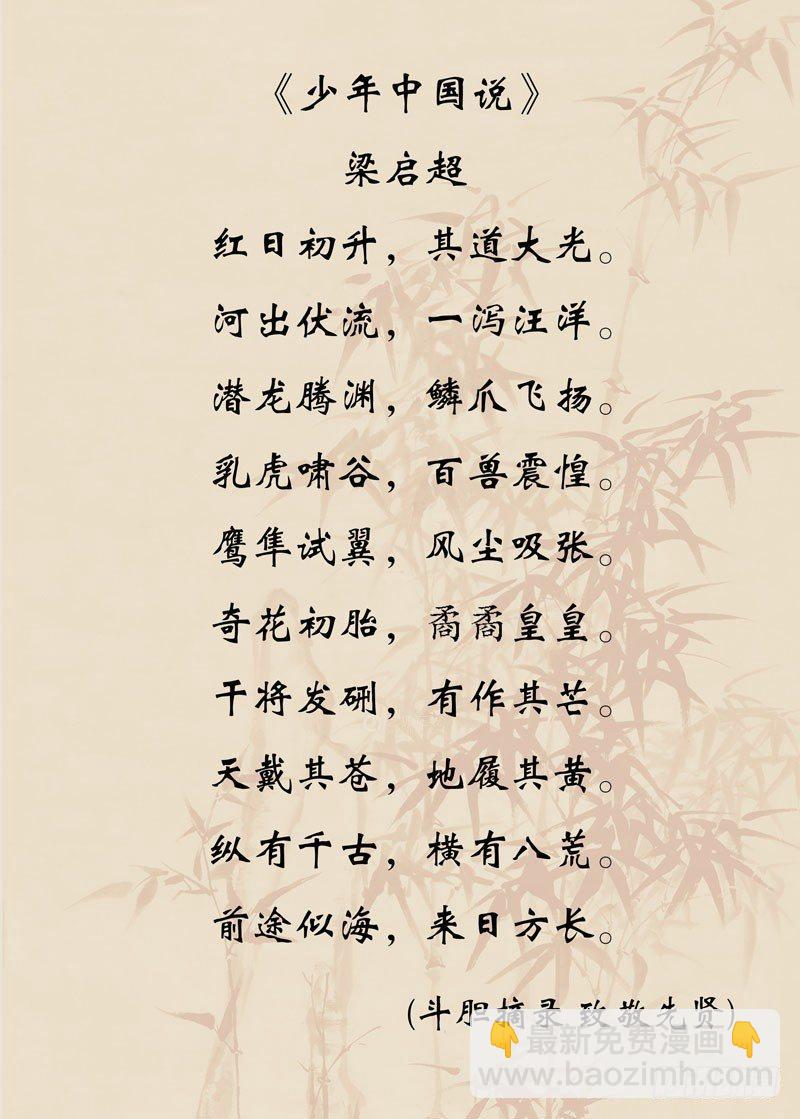 《少年中国说》
梁启超
红日初升，其道大光。
河出伏流，一泻汪洋。
潜龙腾渊，鳞爪飞扬。
乳虎啸谷，百兽震惶。
鹰隼试翼，风尘吸张。
奇花初胎，矞矞皇皇。
干将发硎，有作其芒。
天戴其苍，地履其黄。
纵有千古，横有八荒。
前途似海，来日方长。
(斗胆摘录 致敬先贤)
👇最新免费漫画👇
www.baozimh.com